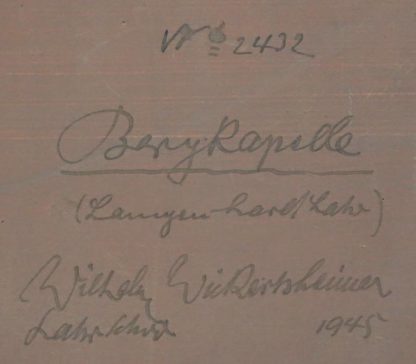 No 2432
Bergkapelle
(Langenhard/Lahr)
Wilhelm Wickertsheimer
1945